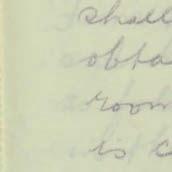 shall
obta
room
is c